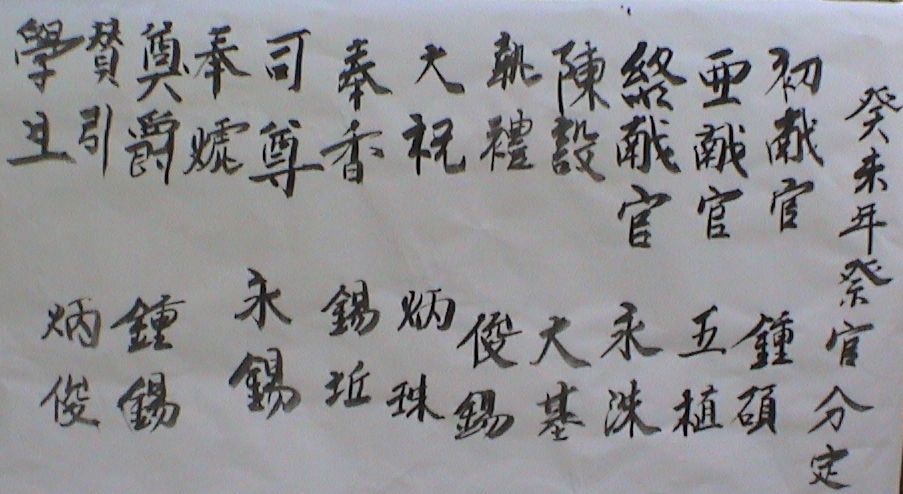 癸未年祭官分定
初献官 鍾碩
亞献官 五植
終献官 永洙
陳設 大基
執禮 俊錫
大祝 炳珠
奉香 錫坵
司尊 永錫
奉爐
奠爵 鍾錫
賛引 炳俊
學生